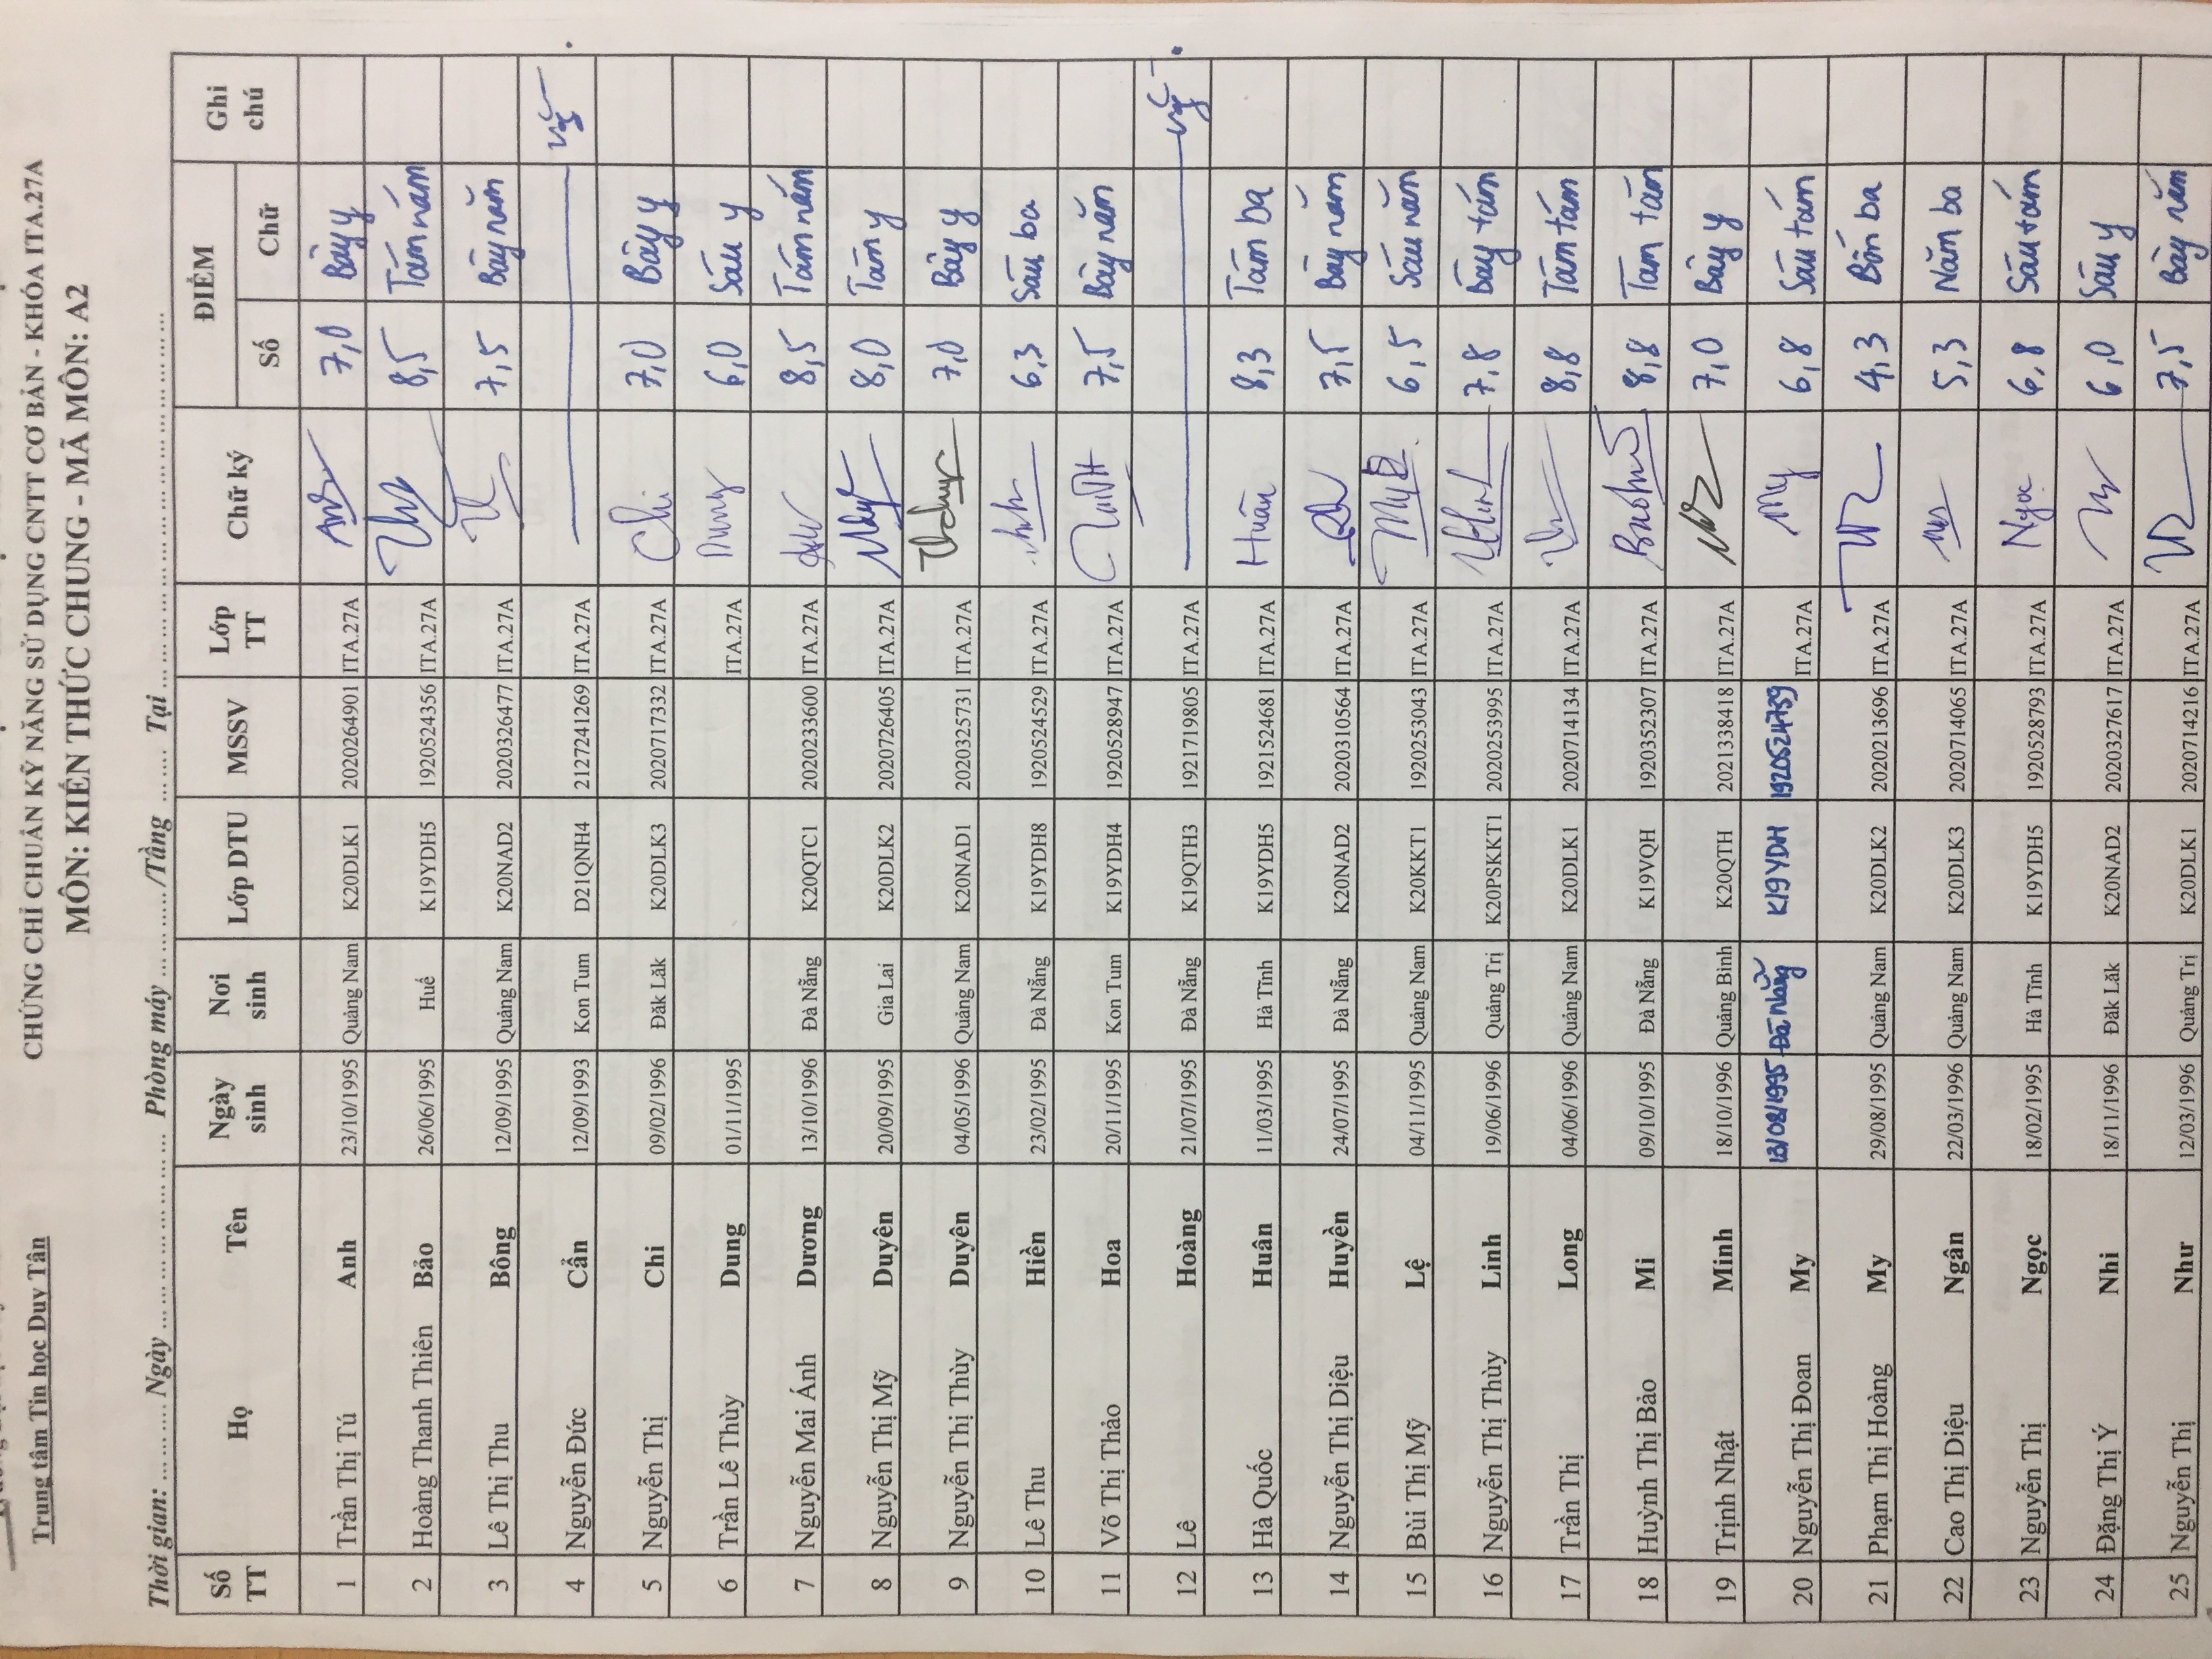 Trung tâm Tin học Duy Tân
CHỨNG CHỈ CHUẨN KỸ NĂNG SỬ DỤNG CNTT CƠ BẢN - KHÓA ITA.27A
MÔN: KIẾN THỨC CHUNG - MÃ MÔN: A2
Thời gian: ......... Ngày ........................ Phòng máy ........./Tầng ....... Tại ........................
Số TT Họ Tên Ngày sinh Nơi sinh Lớp DTU MSSV Lớp TT Chữ ký ĐIỂM Ghi chú
Số Chữ
1 Trần Thị Tú Anh 23/10/1995 Quảng Nam K20DLK1 2020264901 ITA.27A 7,0 Bảy y
2 Hoàng Thanh Thiên Bảo 26/06/1995 Huế K19YDH5 1920524356 ITA.27A 8,5 Tám năm
3 Lê Thị Thu Bông 12/09/1995 Quảng Nam K20NAD2 2020326477 ITA.27A 7,5 Bảy năm
4 Nguyễn Đức Cẩn 12/09/1993 Kon Tum D21QNH4 2127241269 ITA.27A
5 Nguyễn Thị Chi 09/02/1996 Đăk Lăk K20DLK3 2020717332 ITA.27A Chi 7,0 Bảy y
6 Trần Lê Thùy Dung 01/11/1995 ITA.27A Dung 6,0 Sáu y
7 Nguyễn Mai Ánh Dương 13/10/1996 Đà Nẵng K20QTC1 2020233600 ITA.27A 8,5 Tám năm
8 Nguyễn Thị Mỹ Duyên 20/09/1995 Gia Lai K20DLK2 2020726405 ITA.27A 8,0 Tám y
9 Nguyễn Thị Thùy Duyên 04/05/1996 Quảng Nam K20NAD1 2020325731 ITA.27A 7,0 Bảy y
10 Lê Thu Hiền 23/02/1995 Đà Nẵng K19YDH8 1920524529 ITA.27A 6,3 Sáu ba
11 Võ Thị Thảo Hoa 20/11/1995 Kon Tum K19YDH4 1920528947 ITA.27A 7,5 Bảy năm
12 Lê Hoàng 21/07/1995 Đà Nẵng K19QTH3 1921719805 ITA.27A
13 Hà Quốc Huân 11/03/1995 Hà Tĩnh K19YDH5 1921524681 ITA.27A Huân 8,3 Tám ba
14 Nguyễn Thị Diệu Huyền 24/07/1995 Đà Nẵng K20NAD2 2020310564 ITA.27A 7,5 Bảy năm
15 Bùi Thị Mỹ Lệ 04/11/1995 Quảng Nam K20KKT1 1920253043 ITA.27A 6,5 Sáu năm
16 Nguyễn Thị Thùy Linh 19/06/1996 Quảng Trị K20PSKKT1 2020253995 ITA.27A 7,8 Bảy tám
17 Trần Thị Long 04/06/1996 Quảng Nam K20DLK1 2020714134 ITA.27A 8,8 Tám tám
18 Huỳnh Thị Bảo Mi 09/10/1995 Đà Nẵng K19VQH 1920352307 ITA.27A 8,8 Tám tám
19 Trịnh Nhật Minh 18/10/1996 Quảng Bình K20QTH 2021338418 ITA.27A 7,0 Bảy y
20 Nguyễn Thị Đoan My 13/08/1995 Đà Nẵng K19YDH 1920524739 ITA.27A My 6,8 Sáu tám
21 Phạm Thị Hoàng My 29/08/1995 Quảng Nam K20DLK2 2020213696 ITA.27A 4,3 Bốn ba
22 Cao Thị Diệu Ngân 22/03/1996 Quảng Nam K20DLK3 2020714065 ITA.27A 5,3 Năm ba
23 Nguyễn Thị Ngọc 18/02/1995 Hà Tĩnh K19YDH5 1920528793 ITA.27A Ngọc 6,8 Sáu tám
24 Đặng Thị Ý Nhi 18/11/1996 Đăk Lăk K20NAD2 2020327617 ITA.27A 6,0 Sáu y
25 Nguyễn Thị Như 12/03/1996 Quảng Trị K20DLK1 2020714216 ITA.27A 7,5 Bảy năm